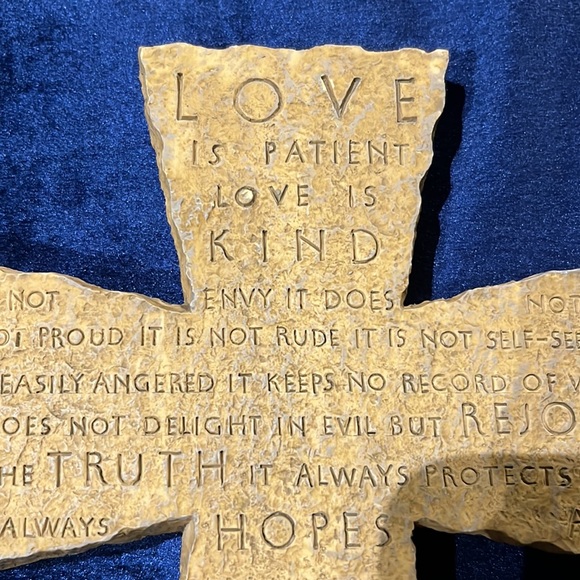 LOVE
IS PATIENT
LOVE IS
KIND
NOT ENVY IT DOES NOT
PROUD IT IS NOT RUDE IT IS NOT SELF-SEE
EASILY ANGERED IT KEEPS NO RECORD OF W
OES NOT DELIGHT IN EVIL BUT REJO
HE TRUTH IT ALWAYS PROTECTS
ALWAYS HOPES A